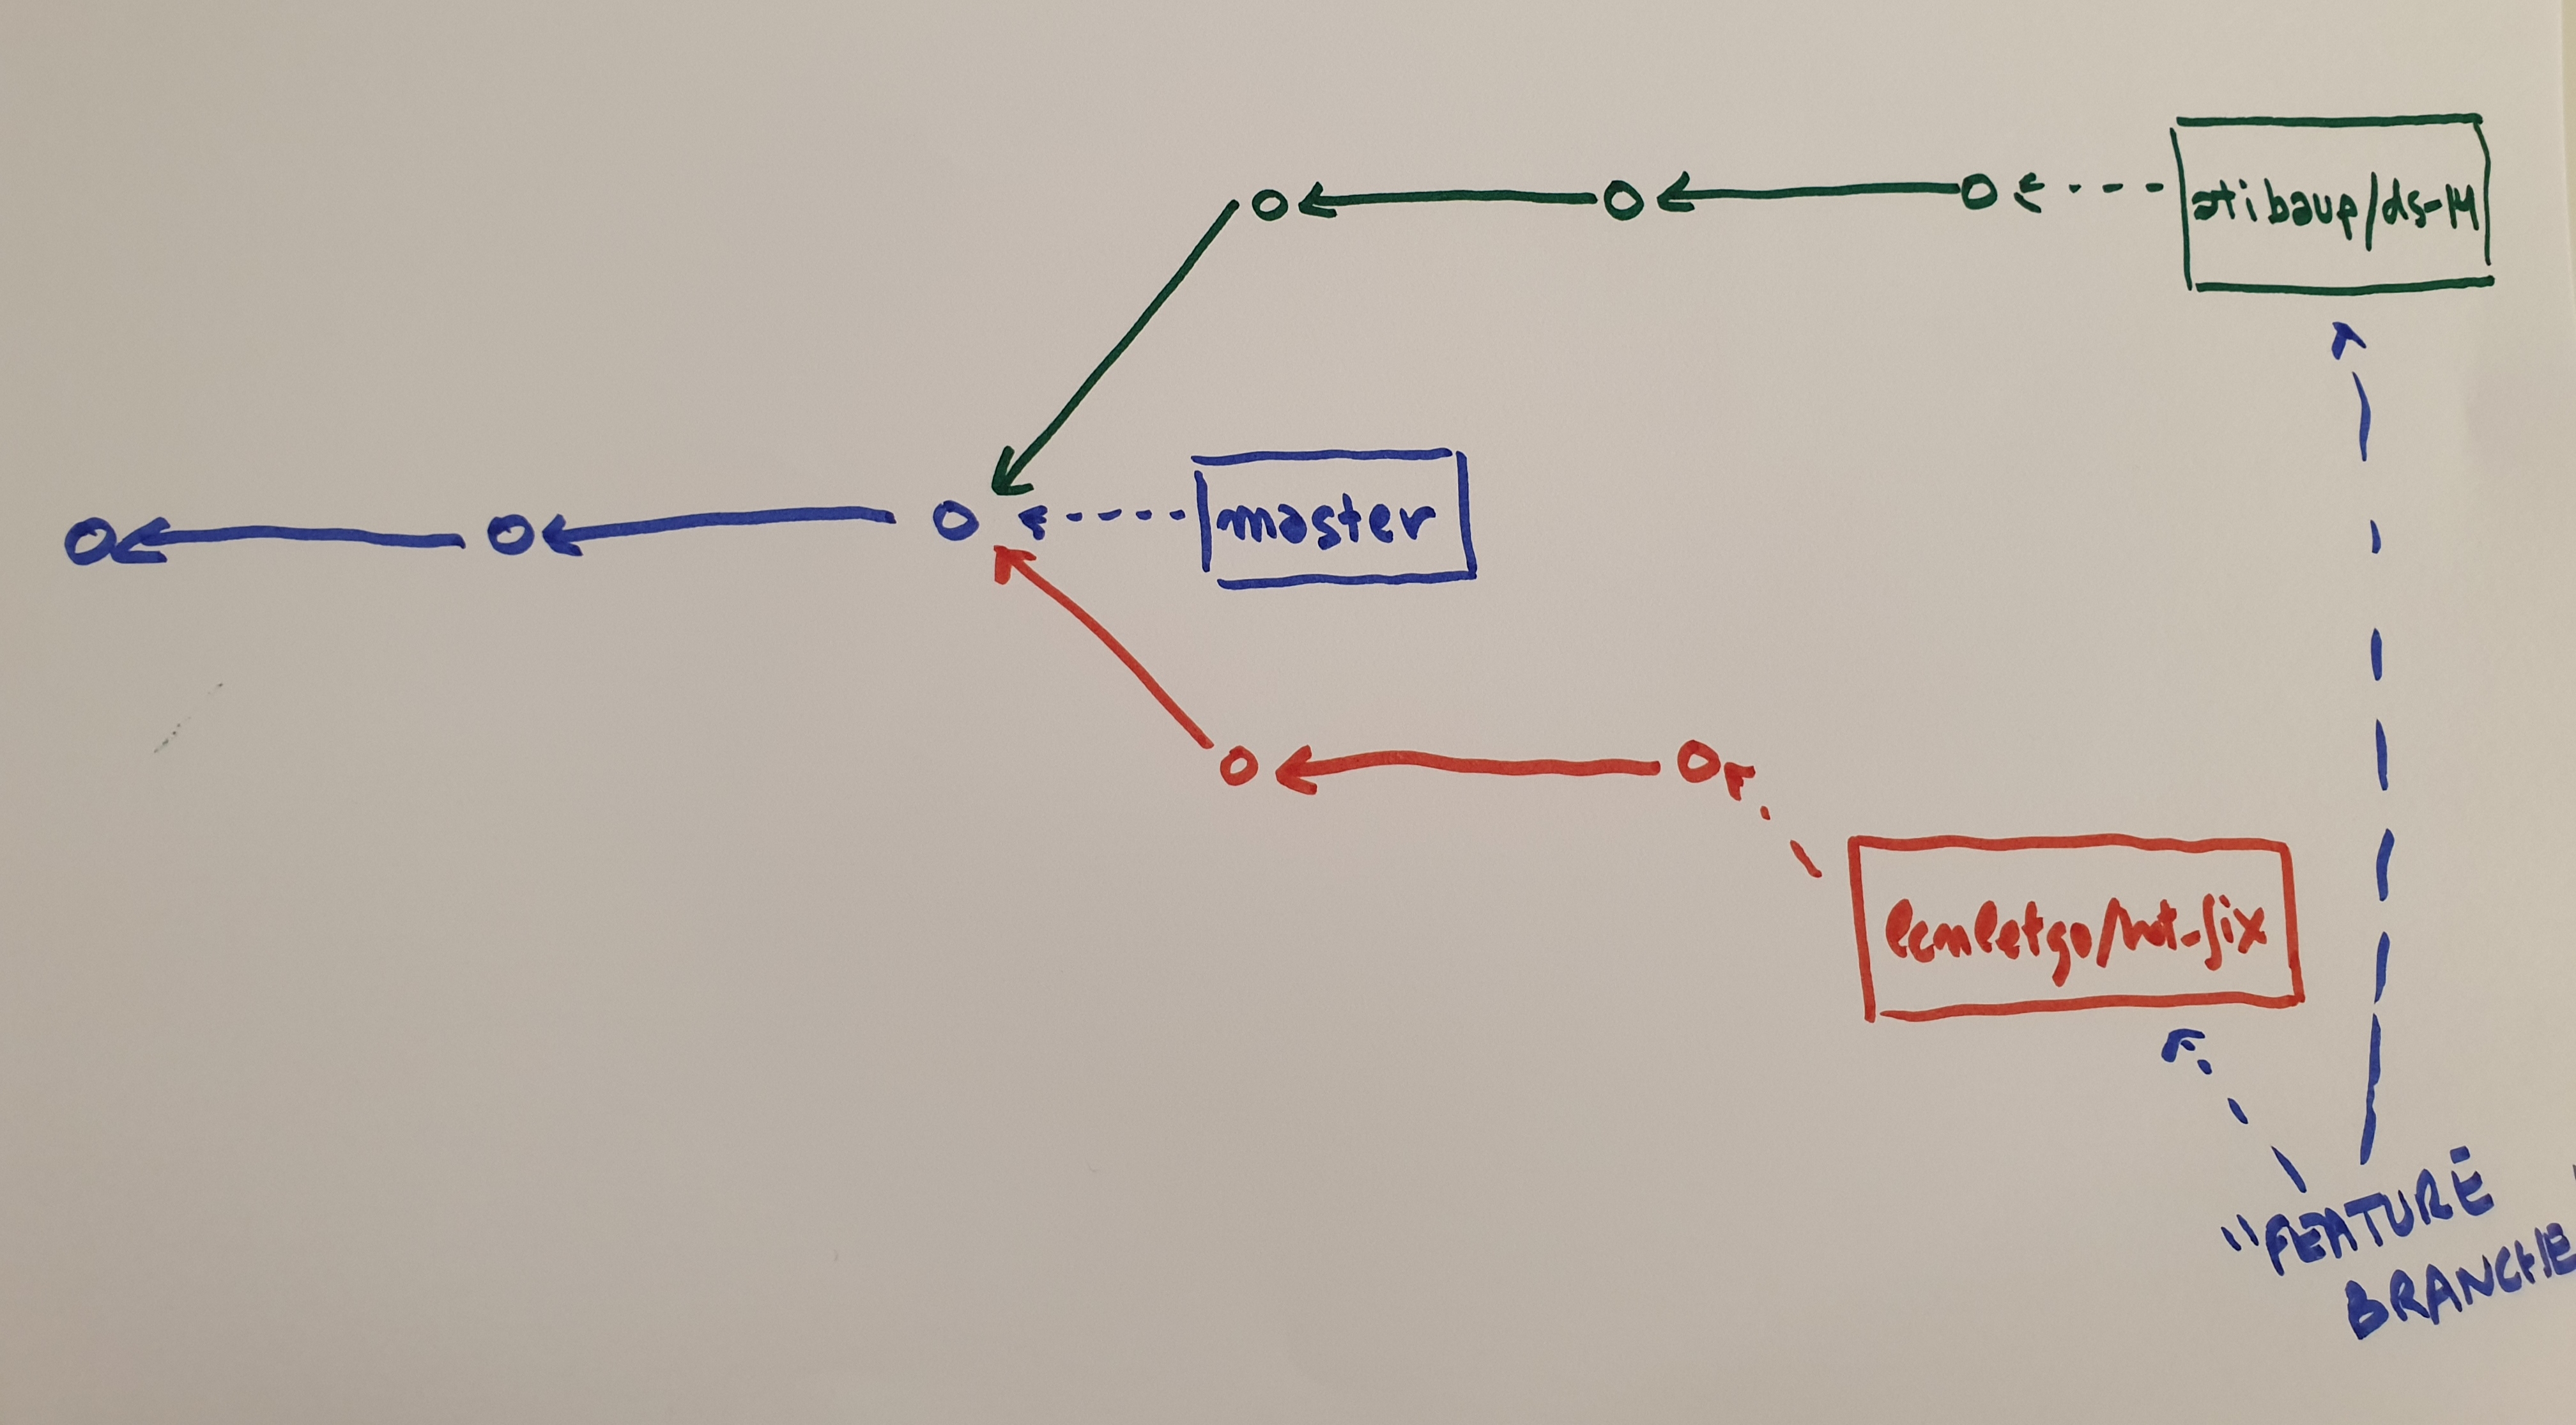 atibaup/ds-14
master
lcmletgo/hot-fix
"FEATURE
BRANCHE